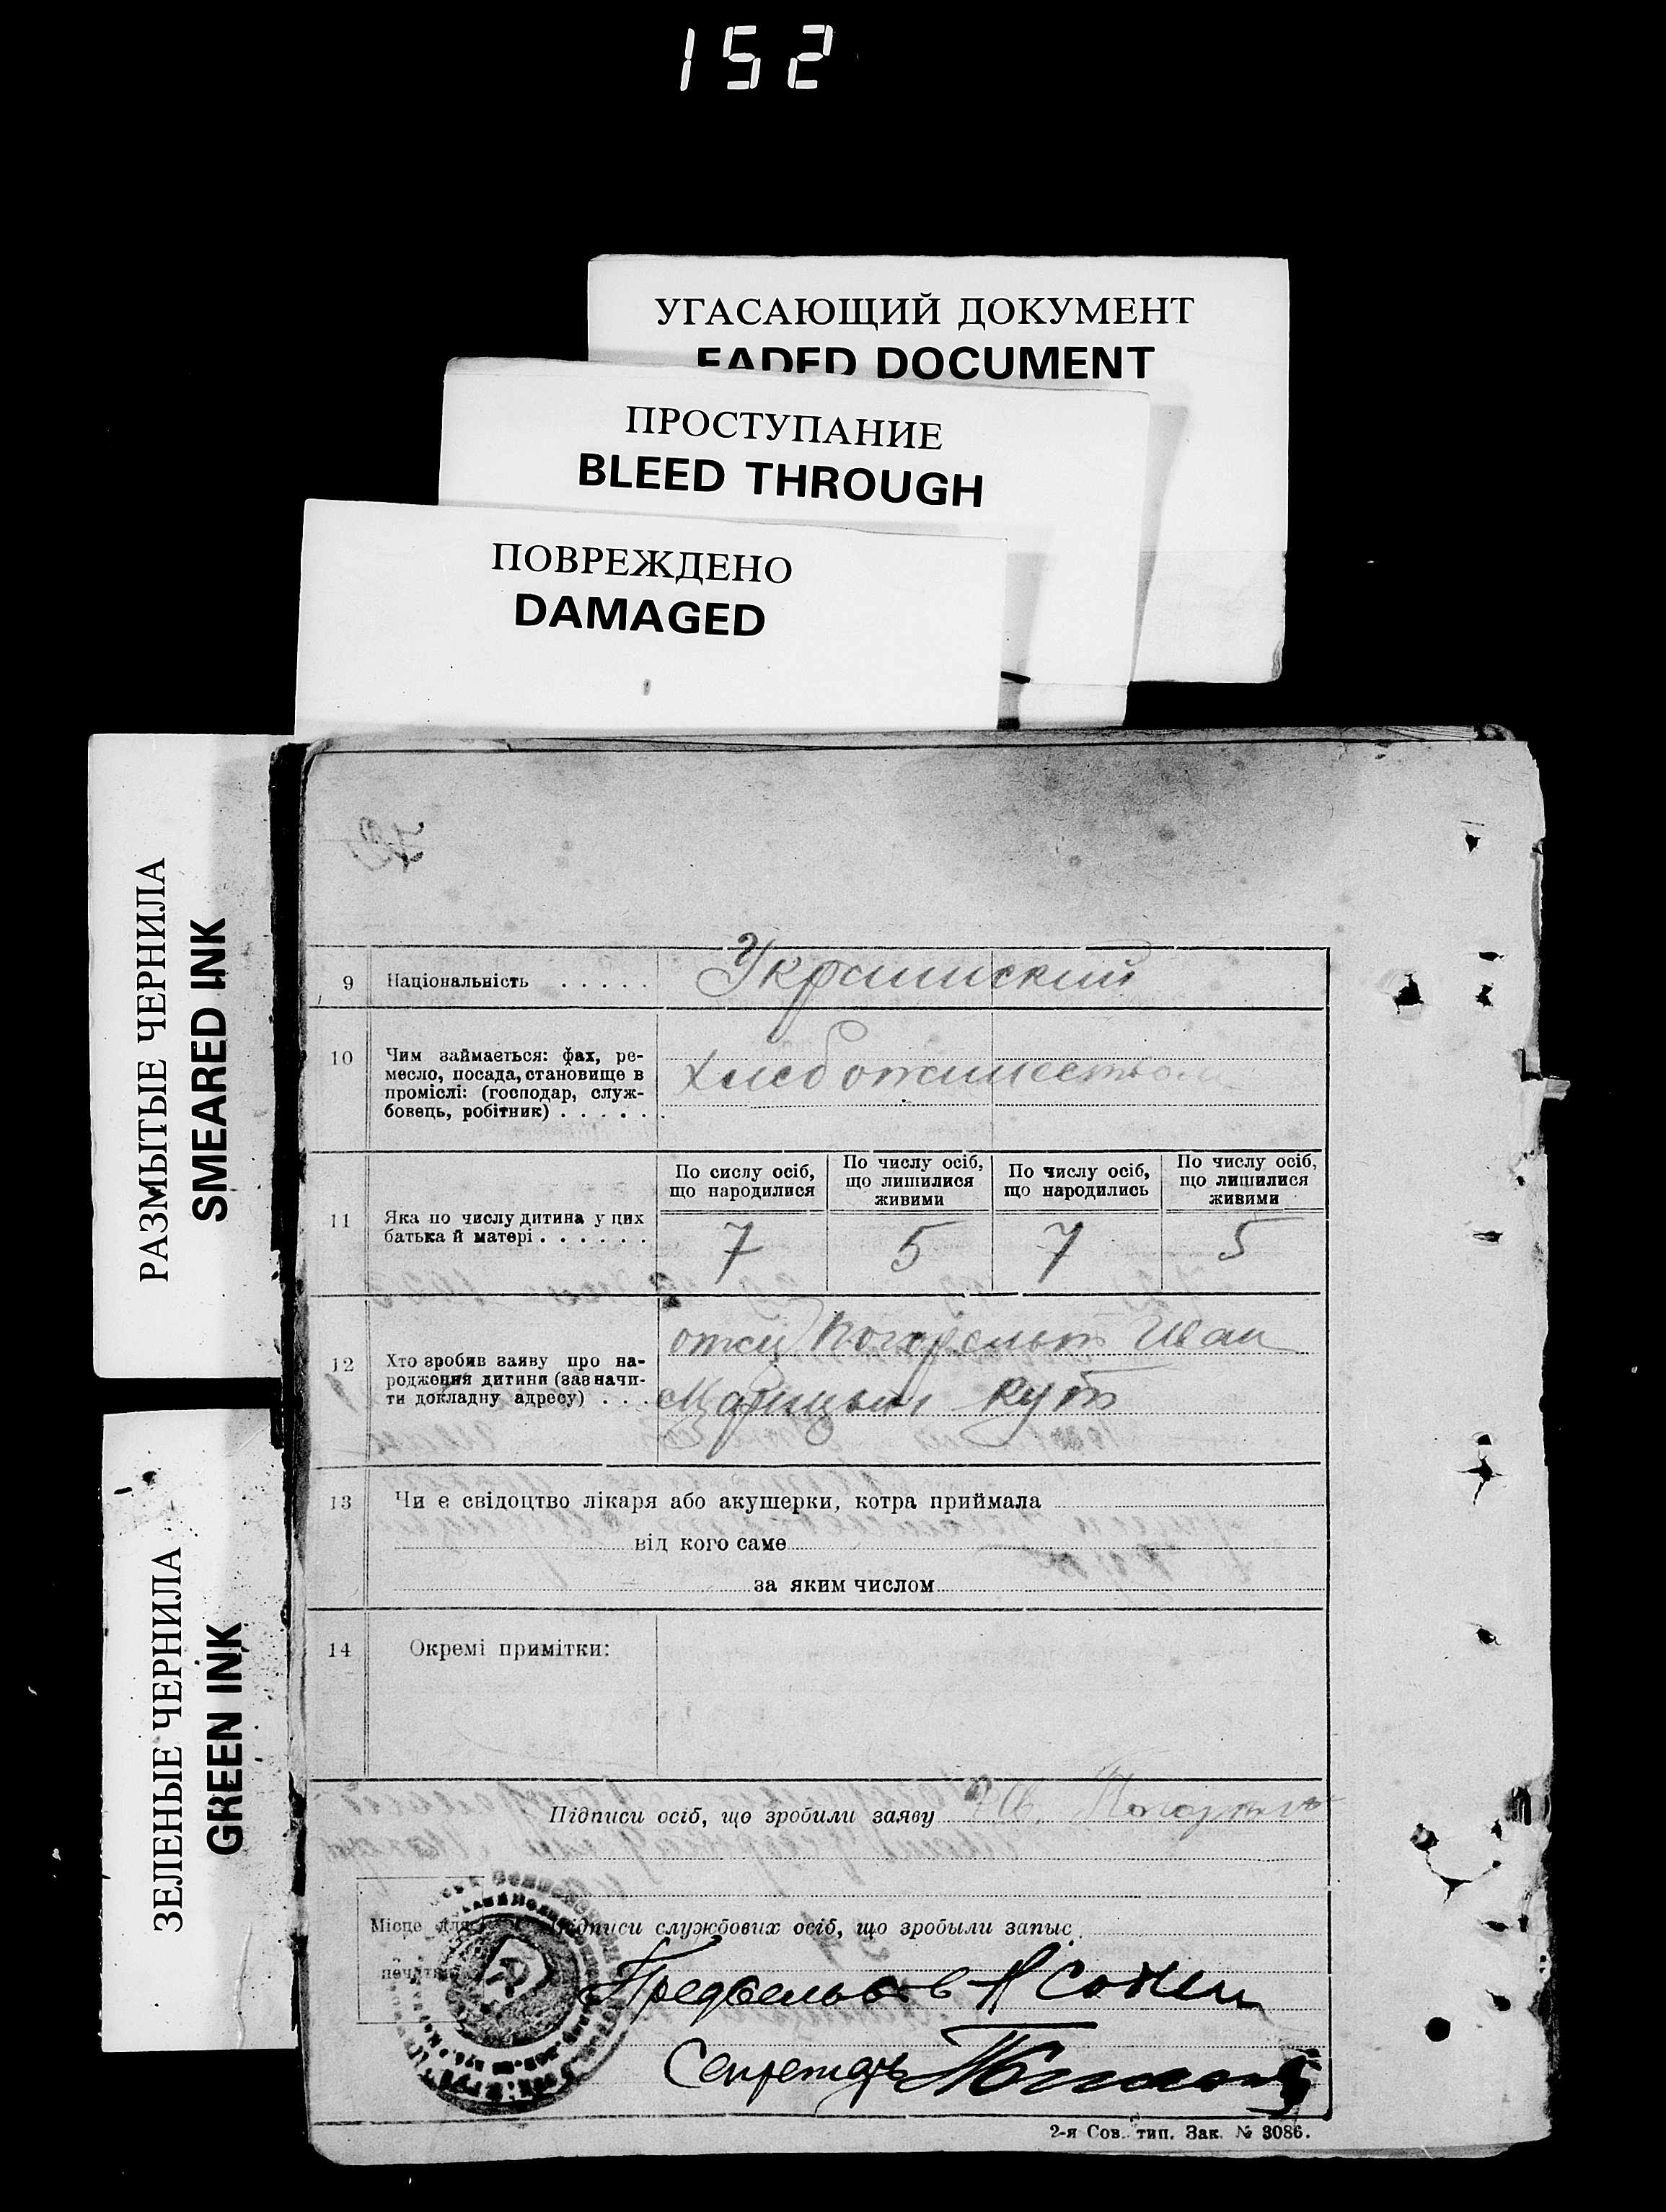 152
УГАСАЮЩИЙ ДОКУМЕНТ
FADED DOCUMENT
ПРОСТУПАНИЕ
BLEED THROUGH
ПОВРЕЖДЕНО
DAMAGED
РАЗМЫТЫЕ ЧЕРНИЛА
SMEARED INK
ЗЕЛЕНЫЕ ЧЕРНИЛА
GREEN INK
9 Національність . . . . . Украинский
10 Чим займається: фах, ре-
месло, посада, становище в
промислі: (господар, служ-
бовець, робітник) . . . . .
11 Яка по числу дитина у цих
батька й матері . . . . . .
По сислу осіб,
що народилися
По числу осіб,
що лишилися
живими
По числу осіб,
що народились
По числу осіб,
що лишилися
живими
7 5 7 5
12 Хто зробив заяву про на-
родження дитини (зазначи-
ти докладну адресу) . . .
Иван
кут
13 Чи є свідоцтво лікаря або акушерки, котра приймала
від кого саме
за яким числом
14 Окремі примітки:
Підписи осіб, що зробили заяву Ив.
Місце для
печатки
Підписи службових осіб, що зробыли запыс
Секретарь
2-я Сов. тип. Зак. № 3086.